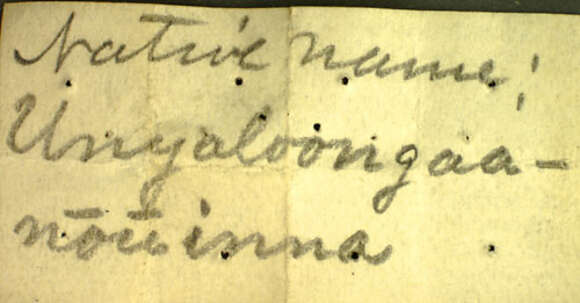 Native name;
Unyaloongaa-
nōwinna